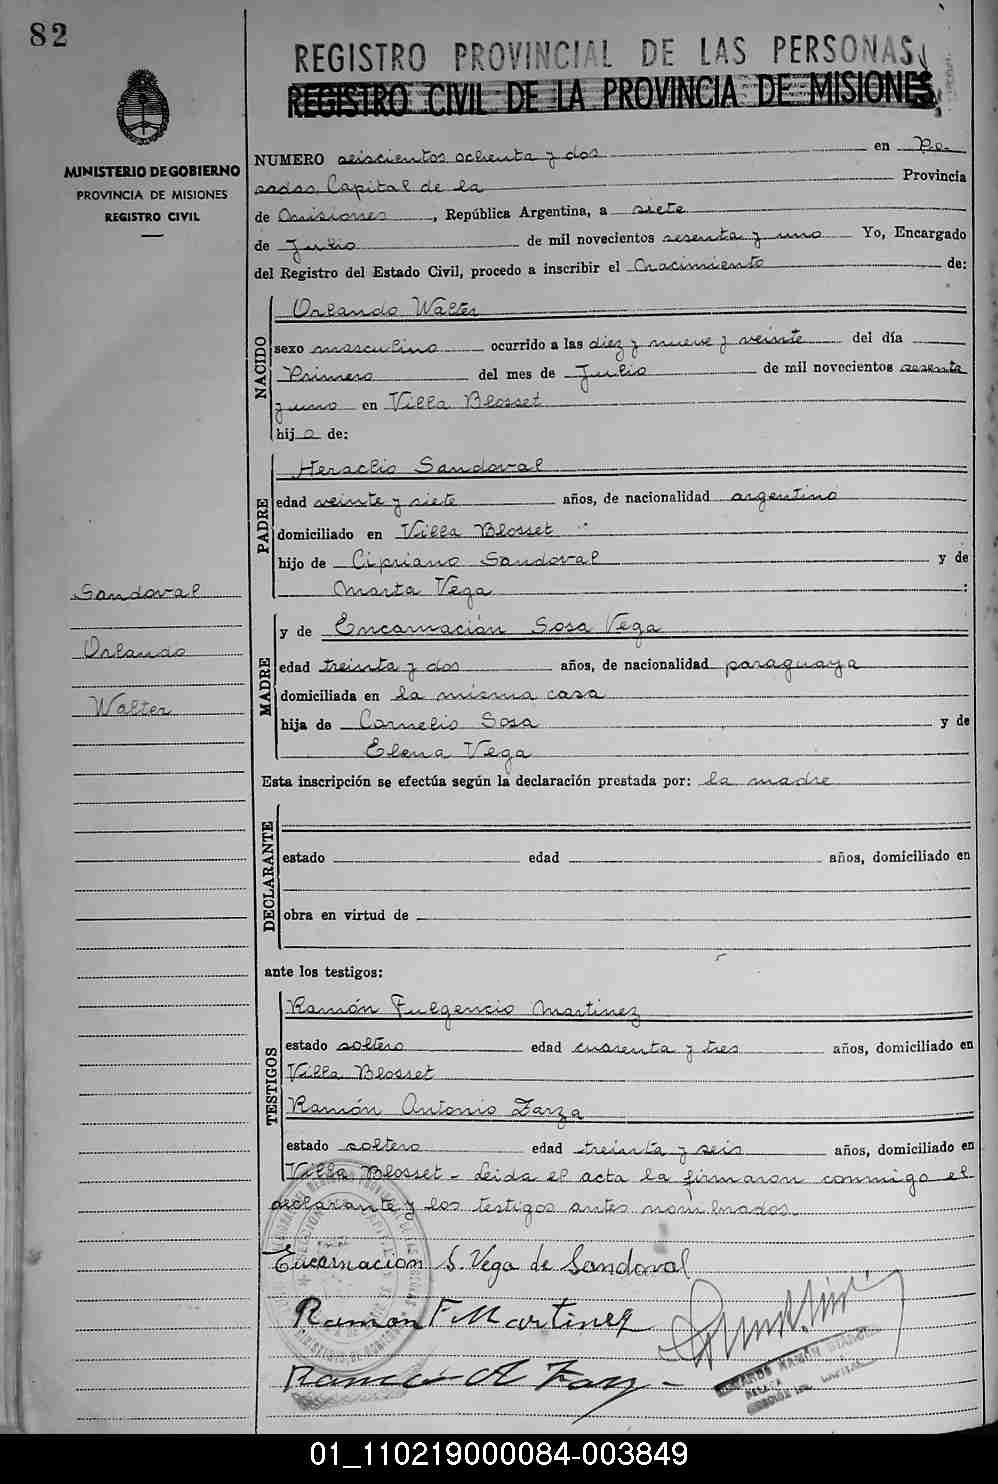 82
REGISTRO PROVINCIAL DE LAS PERSONAS
REGISTRO CIVIL DE LA PROVINCIA DE MISIONES
MINISTERIO DE GOBIERNO
PROVINCIA DE MISIONES
REGISTRO CIVIL
NUMERO seiscientos ochenta y dos en Po-
sadas, Capital de la Provincia
de Misiones, República Argentina, a siete
de Julio de mil novecientos sesenta y uno Yo, Encargado
del Registro del Estado Civil, procedo a inscribir el Nacimiento de:
NACIDO
Orlando Walter
sexo masculino ocurrido a las diez y nueve y veinte del día
Primero del mes de Julio de mil novecientos sesenta
y uno en Villa Blosset
hijo de:
PADRE
Heraclio Sandoval
edad veinte y siete años, de nacionalidad argentino
domiciliado en Villa Blosset
hijo de Cipriano Sandoval y de
Marta Vega :
MADRE
y de Encarnación Sosa Vega
edad treinta y dos años, de nacionalidad paraguaya
domiciliada en la misma casa
hija de Cornelio Sosa y de
Elena Vega
Sandoval
Orlando
Walter
Esta inscripción se efectúa según la declaración prestada por: la madre
DECLARANTE
estado edad años, domiciliado en
obra en virtud de
ante los testigos:
TESTIGOS
Ramón Fulgencio Martinez
estado soltero edad cuarenta y tres años, domiciliado en
Villa Blosset
Ramón Antonio Zarza
estado soltero edad treinta y seis años, domiciliado en
Villa Blosset - Leida el acta la firmaron conmigo el
declarante y los testigos antes nombrados.
Encarnacion S. Vega de Sandoval
Ramon F Martinez
01_110219000084-003849